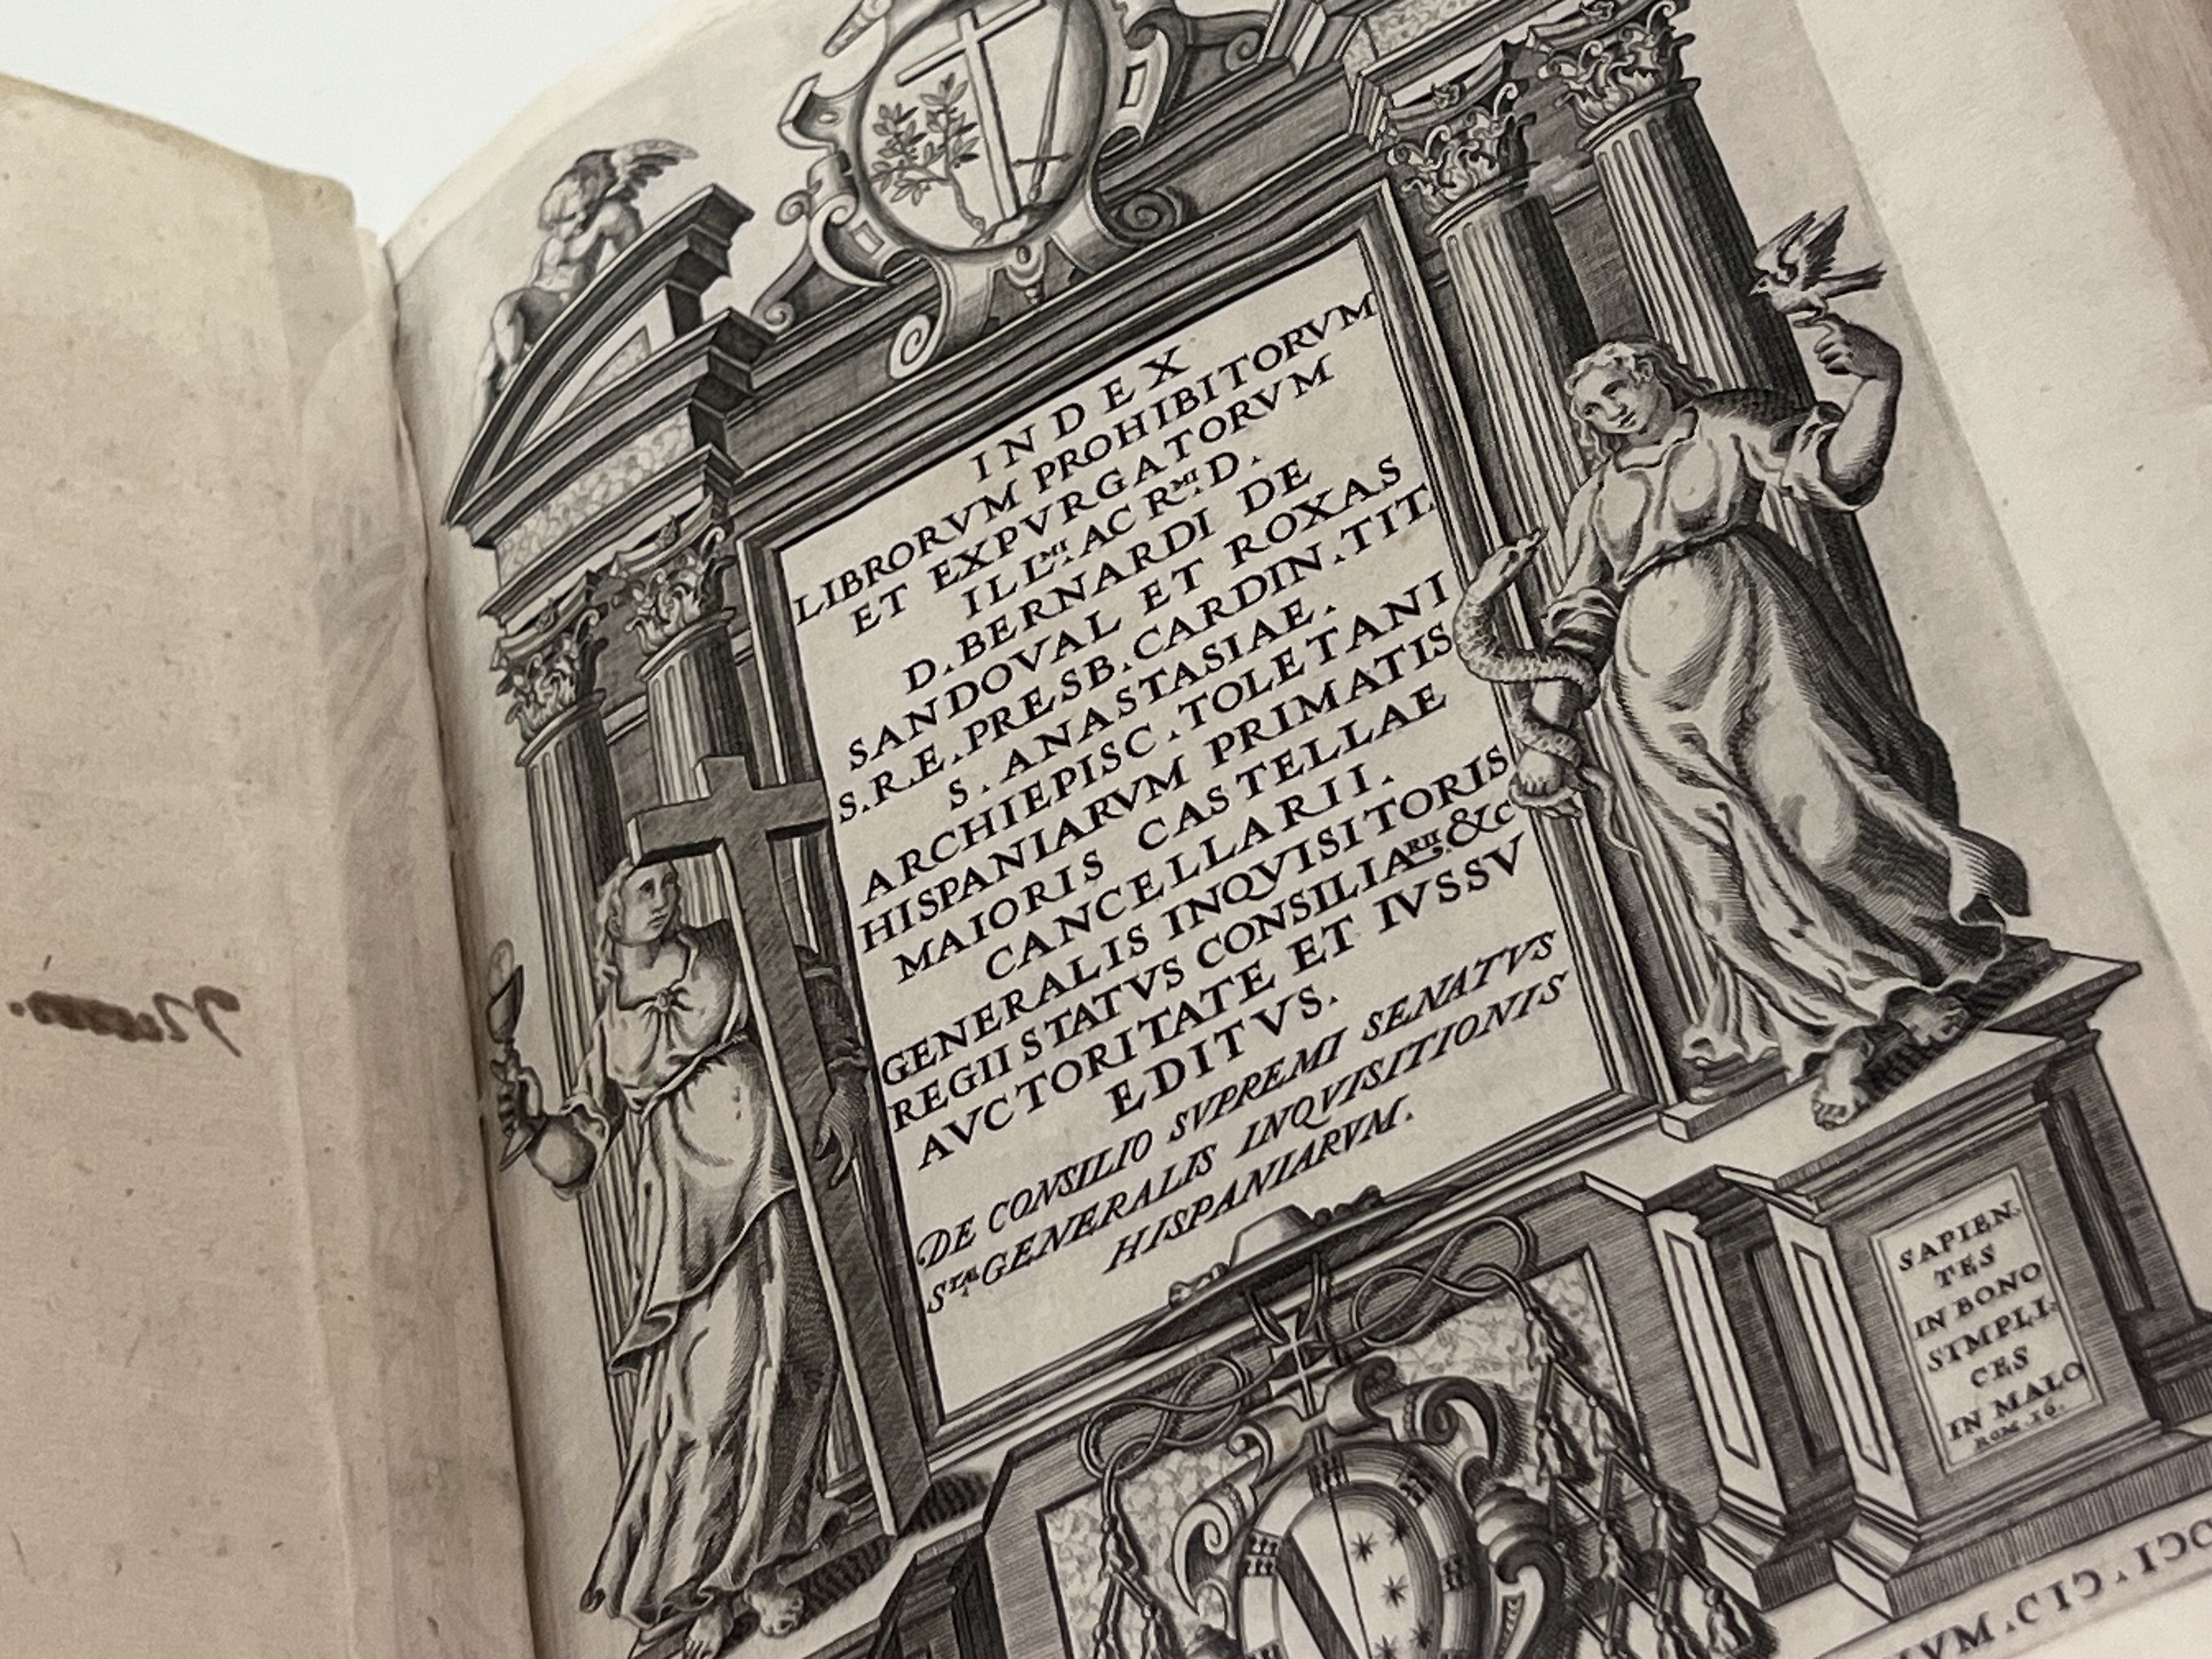 INDEX
LIBRORVM PROHIBITORVM
ET EXPVRGATORVM
ILL.MI AC R.MI D.
D. BERNARDI DE
SANDOVAL ET ROXAS
S.R.E. PRESB. CARDIN. TIT.
S. ANASTASIAE.
ARCHIEPISC. TOLETANI
HISPANIARVM PRIMATIS
MAIORIS CASTELLAE
CANCELLARII.
GENERALIS INQVISITORIS
REGII STATVS CONSILIARII, &c
AVCTORITATE ET IVSSV
EDITVS.
DE CONSILIO SVPREMI SENATVS
STAE GENERALIS INQVISITIONIS
HISPANIARVM.
SAPIEN.
TES
IN BONO
SIMPLI.
CES
IN MALO
ROM. 16.